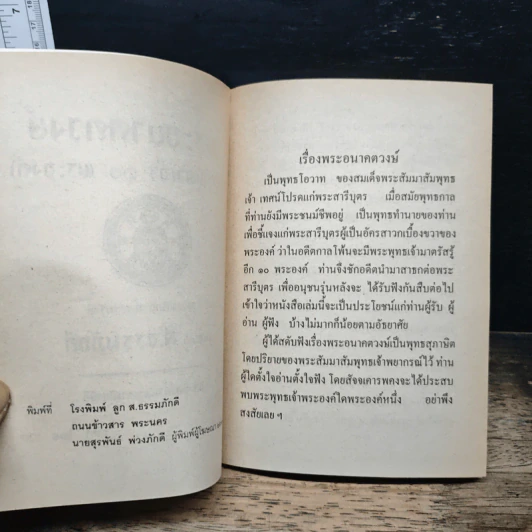 พิมพ์ที่ โรงพิมพ์ ลูก ส.ธรรมภักดี
ถนนข้าวสาร พระนคร
นายสุรพันธ์ พ่วงภักดี ผู้พิมพ์ผู้โฆษณา
เรื่องพระอนาคตวงษ์
เป็นพุทธโอวาท ของสมเด็จพระสัมมาสัมพุทธ
เจ้า เทศน์โปรดแก่พระสารีบุตร เมื่อสมัยพุทธกาล
ที่ท่านยังมีพระชนม์ชีพอยู่ เป็นพุทธทำนายของท่าน
เพื่อชี้แจงแก่พระสารีบุตรผู้เป็นอัครสาวกเบื้องขวาของ
พระองค์ ว่าในอดีตกาลโพ้นจะมีพระพุทธเจ้ามาตรัสรู้
อีก ๑๐ พระองค์ ท่านจึงชักอดีตนำมาสาธกต่อพระ
สารีบุตร เพื่ออนุชนรุ่นหลังจะ ได้รับฟังกันสืบต่อไป
เข้าใจว่าหนังสือเล่มนี้จะเป็นประโยชน์แก่ท่านผู้รับ ผู้
อ่าน ผู้ฟัง บ้างไม่มากก็น้อยตามอัธยาศัย
ผู้ใดสดับฟังเรื่องพระอนาคตวงษ์เป็นพุทธสุภาษิต
โดยปริยายของพระสัมมาสัมพุทธเจ้าพยากรณ์ไว้ ท่าน
ผู้ใดตั้งใจอ่านตั้งใจฟัง โดยสัจจเคารพคงจะได้ประสบ
พบพระพุทธเจ้าพระองค์ใดพระองค์หนึ่ง อย่าพึง
สงสัยเลย ฯ